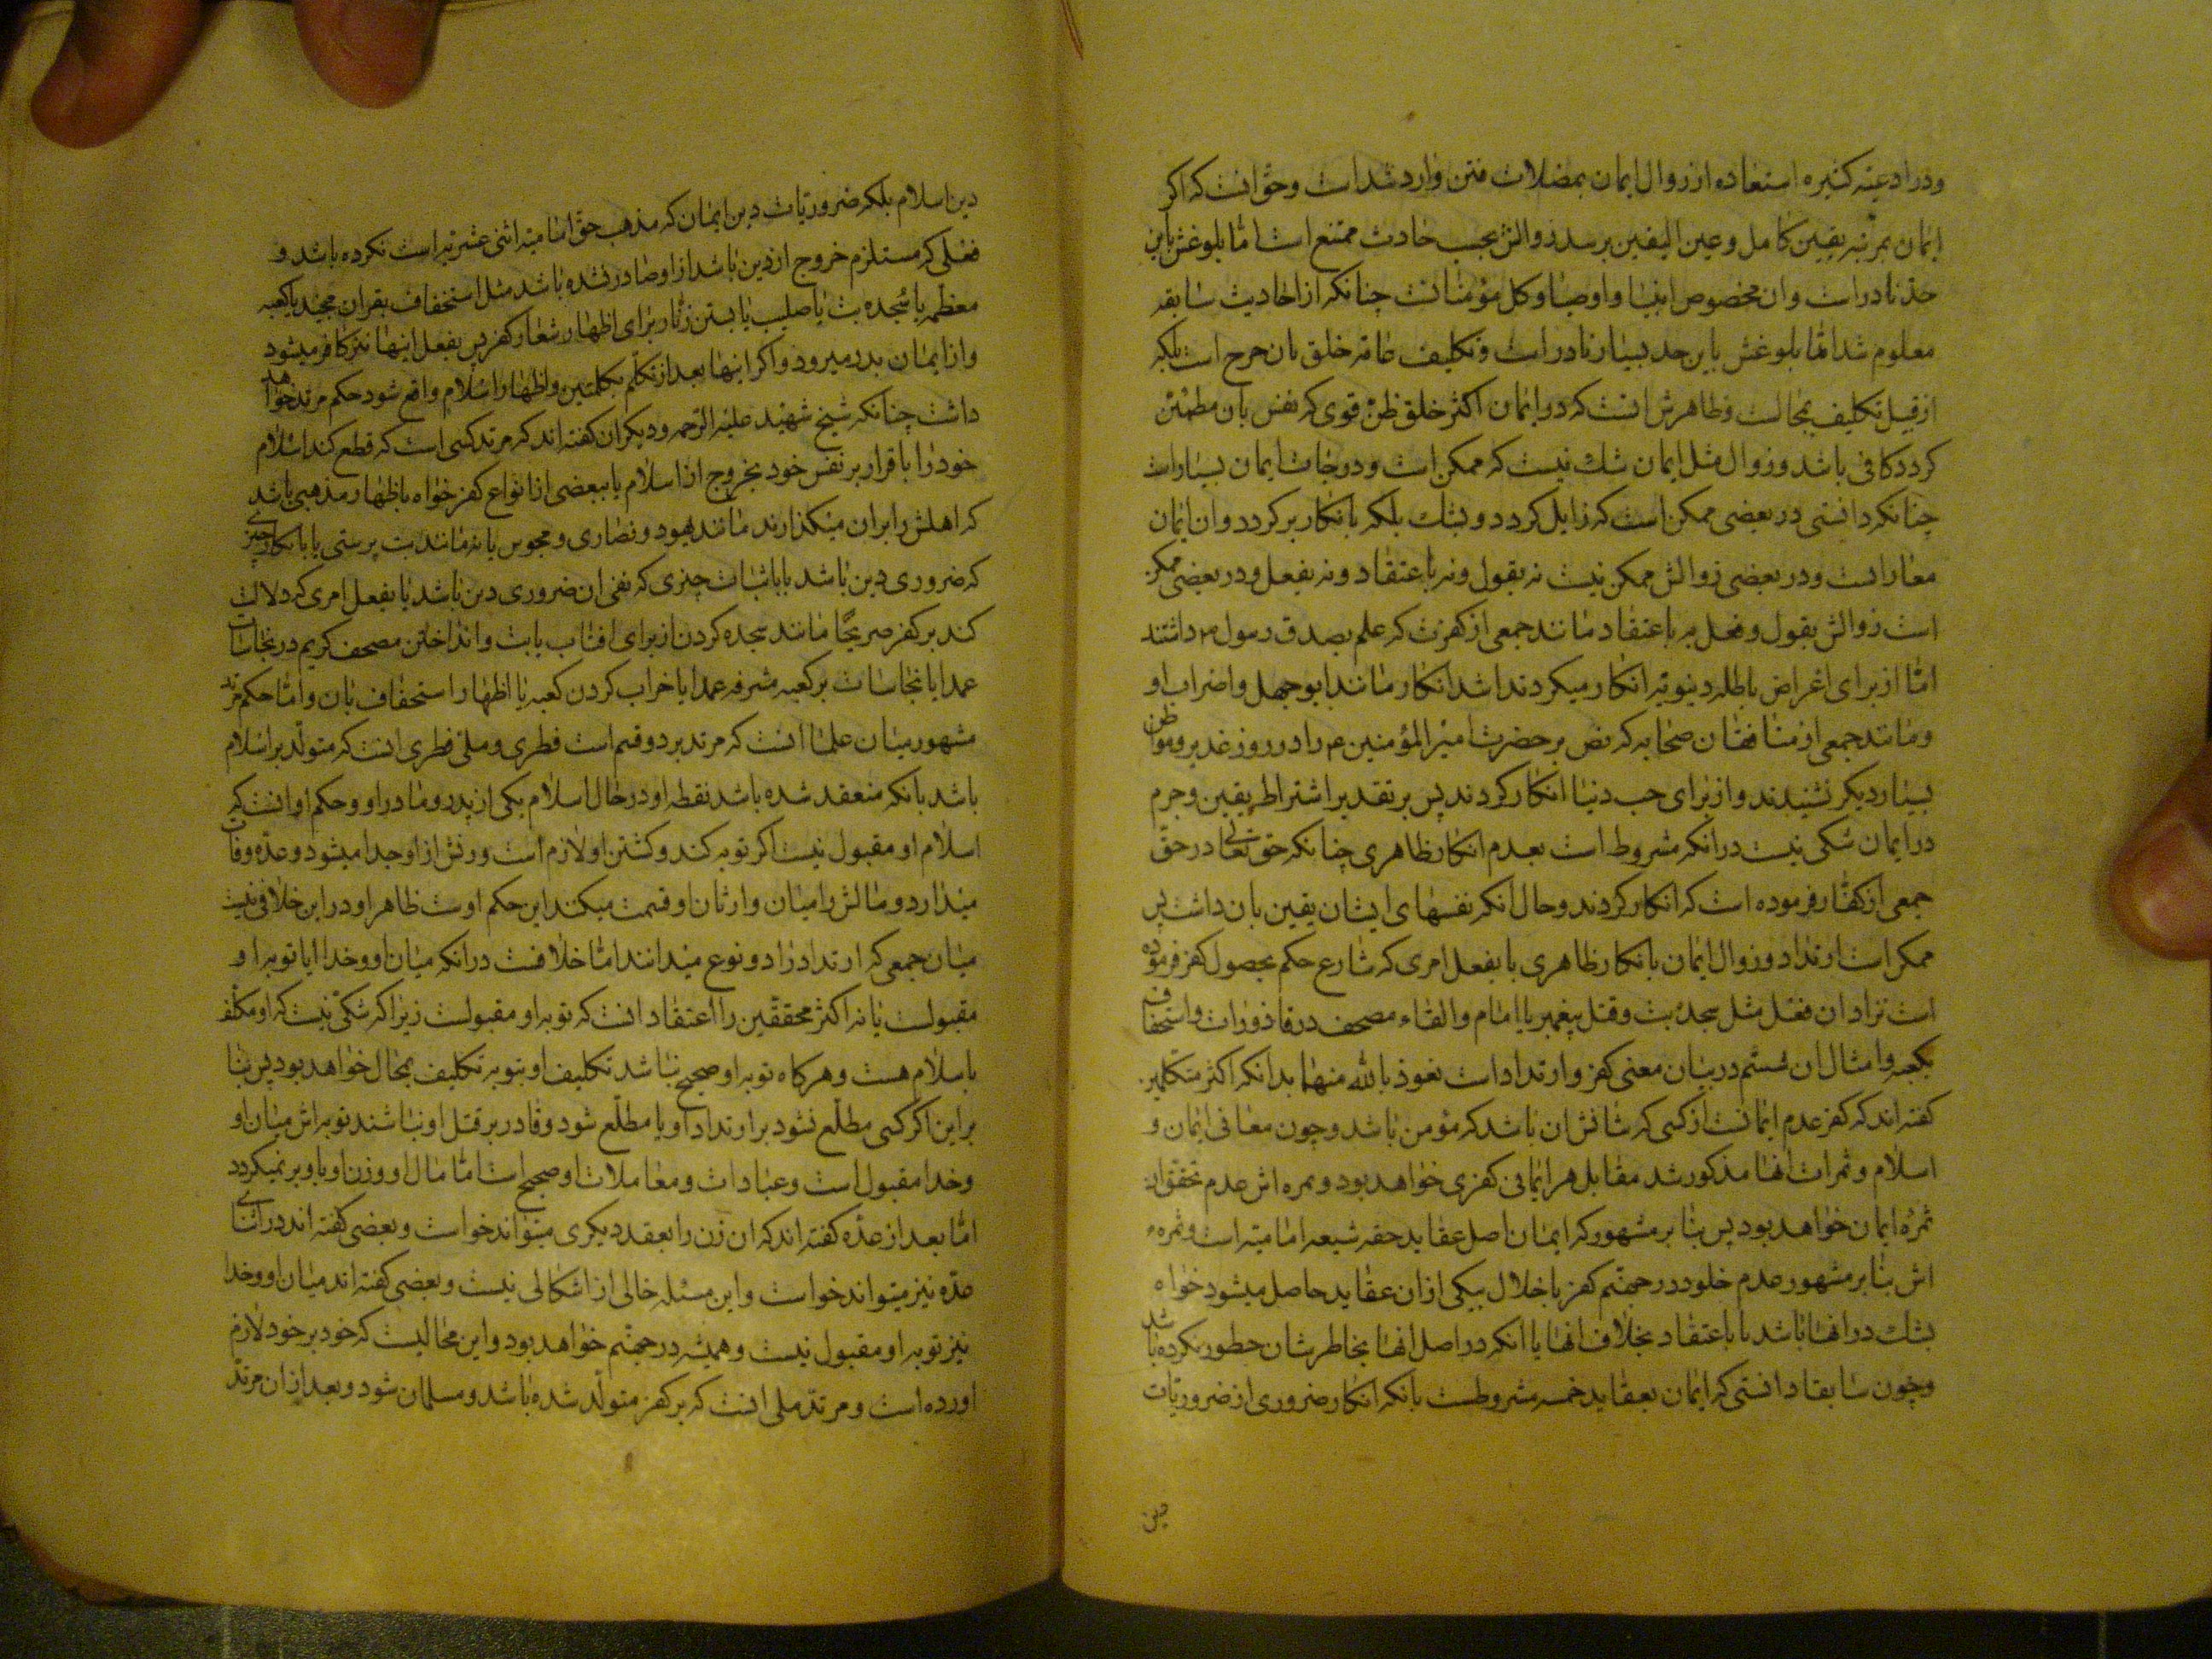 ودر ادعیه کثیره استعاده از زوال ایمان بمضلات فتن وارد شداست وحق آنست که اکر
ایمان بمرتبه یقین کامل وعین الیقین برسد زوالش بحسب عادت ممتنع است اما بلوغش باین
حد نادر است وان مخصوص انبیا و اوصیا وکل مؤمنانست چنانکه از احادیث سابقه
معلوم شد اما بلوغش باین حد بسیار نادر است وتکلیف عامه خلق بان حرج است بلکه
از قبیل تکلیف بمحالست وظاهرش انست که در ایمان اکثر خلق ظن قوی که نفس بان مطمئن
کردد کافی باشد وزوال مثل ایمان شک نیست که ممکن است ودرجات ایمان بسیار است
چنانکه دانستی در بعضی ممکن است که زایل کردد وبشک بلکه بانکار برکردد وان ایمان
معار است ودر بعضی زوالش ممکن نیست نه بقول ونه باعتقاد ونه بفعل ودر بعضی ممکن
است زوالش بقول وفعل نه باعتقاد مانند جمعی از کفره که علم بصدق رسول م داشتند
اما از برای اغراض باطله دنیویه انکار میکردند اشد انکار مانند ابوجهل واضراب او
ومانند جمعی از منافقان صحابه که نص بر حضرت امیرالمؤمنین ع را در روز غدیر ومواطن
بسیار دیکر شنیدند واز برای حب دنیا انکار کردند پس بر تقدیر اشتراط یقین وجزم
در ایمان شکی نیست در انکه مشروط است بعدم انکار ظاهری چنانکه حق تعالی در حق
جمعی از کفار فرموده است که انکار کردند وحال انکه نفسهای ایشان یقین بان داشت پس
ممکن است ارتداد وزوال ایمان بانکار ظاهری یا بفعل امری که شارع حکم بحصول کفر فرموده
است نزد ان فعل مثل سجده بت وقتل پیغمبر یا امام والقاء مصحف در قاذورات واستخفاف
بکعبه وامثال ان ششم در بیان معنی کفر وارتداد است نعوذ بالله منهما بدانکه اکثر متکلمین
کفته اند که کفر عدم ایمانست از کسی که شانش ان باشد که مؤمن باشد وچون معانی ایمان و
اسلام وثمرات انها مذکور شد مقابل هر ایمانی کفری خواهد بود وثمره اش عدم تحقق ان
ثمره ایمان خواهد بود پس بنا بر مشهور که ایمان اصل عقاید حقه شیعه امامیه است وثمره
اش بنا بر مشهور عدم خلود در جهنم کفر باخلال بیکی از ان عقاید حاصل میشود خواه
بشک در انها باشد یا باعتقاد بخلاف انها یا انکه در اصل انها بخاطرشان خطور نکرده باشد
وچون سابقا دانستی که ایمان بعقاید خمسه مشروطست بانکه انکار ضروری از ضروریات
دین
دین اسلام بلکه ضروریات دین ایمان که مذهب حق امامیه اثنی عشریه است نکرده باشد و
فعلی که مستلزم خروج از دین باشد از او صادر نشده باشد مثل استخفاف بقران مجید یا کعبه
معظمه یا سجده بت یا صلیب یا بستن زنار برای اظهار شعار کفر پس بفعل اینها نیز کافر میشود
واز ایمان بدر میرود واکر اینها بعد از تکلم بکلمتین واظهار اسلام واقع شود حکم مرتد خواهد
داشت چنانکه شیخ شهید علیه الرحمه ودیکران کفته اند که مرتد کسی است که قطع کند اسلام
خود را باقرار بر نفس خود بخروج از اسلام یا ببعضی از انواع کفر خواه باظهار مذهبی باشد
که اهلش را بران میکذارند مانند یهود ونصاری ومجوس یا نه مانند بت پرستی یا بانکار چیزی
که ضروری دین باشد یا باثبات چیزی که نفی ان ضروری دین باشد یا بفعل امری که دلالت
کند بر کفر صریحا مانند سجده کردن از برای افتاب یا بت وانداختن مصحف کریم در نجاسات
عمدا یا نجاسات بر کعبه مشرفه عمدا یا خراب کردن کعبه یا اظهار استخفاف بان واما حکم مرتد
مشهور میان علما انست که مرتد بر دو قسم است فطری وملی فطری انست که متولد بر اسلام
باشد بانکه منعقد شده باشد نقطه او در حال اسلام یکی از پدر ومادر او وحکم او انست که
اسلام او مقبول نیست اکر توبه کند وکشتن او لازم است وزنش از او جدا میشود وعده وفات
میدارد ومالش را میان وارثان او قسمت میکنند این حکم اوست ظاهرا ودر این خلافی نیست
میان جمعی که ارتداد را دو نوع میدانند اما خلافست در انکه میان او وخدا ایا توبه او
مقبولست یا نه اکثر محققین را اعتقاد انست که توبه او مقبولست زیرا که شکی نیست که او مکلف
باسلام هست وهرکاه توبه او صحیح نباشد تکلیف او بتوبه تکلیف بمحال خواهد بود پس بنا
بر این اکر کسی مطلع نشود بر ارتداد او یا مطلع شود وقادر بر قتل او نباشند توبه اش میان او
وخدا مقبول است وعبادات ومعاملات او صحیح است اما مال او وزن او باو بر نمیکردد
اما بعد از عده کفته اند که ان زن را بعقد دیکری میتواند خواست وبعضی کفته اند در اثنای
عده نیز میتواند خواست واین مسئله خالی از اشکالی نیست وبعضی کفته اند میان او وخدا
نیز توبه او مقبول نیست وهمیشه در جهنم خواهد بود واین محالیست که خود بر خود لازم
اورده است ومرتد ملی انست که بر کفر متولد شده باشد ومسلمان شود وبعد از ان مرتد